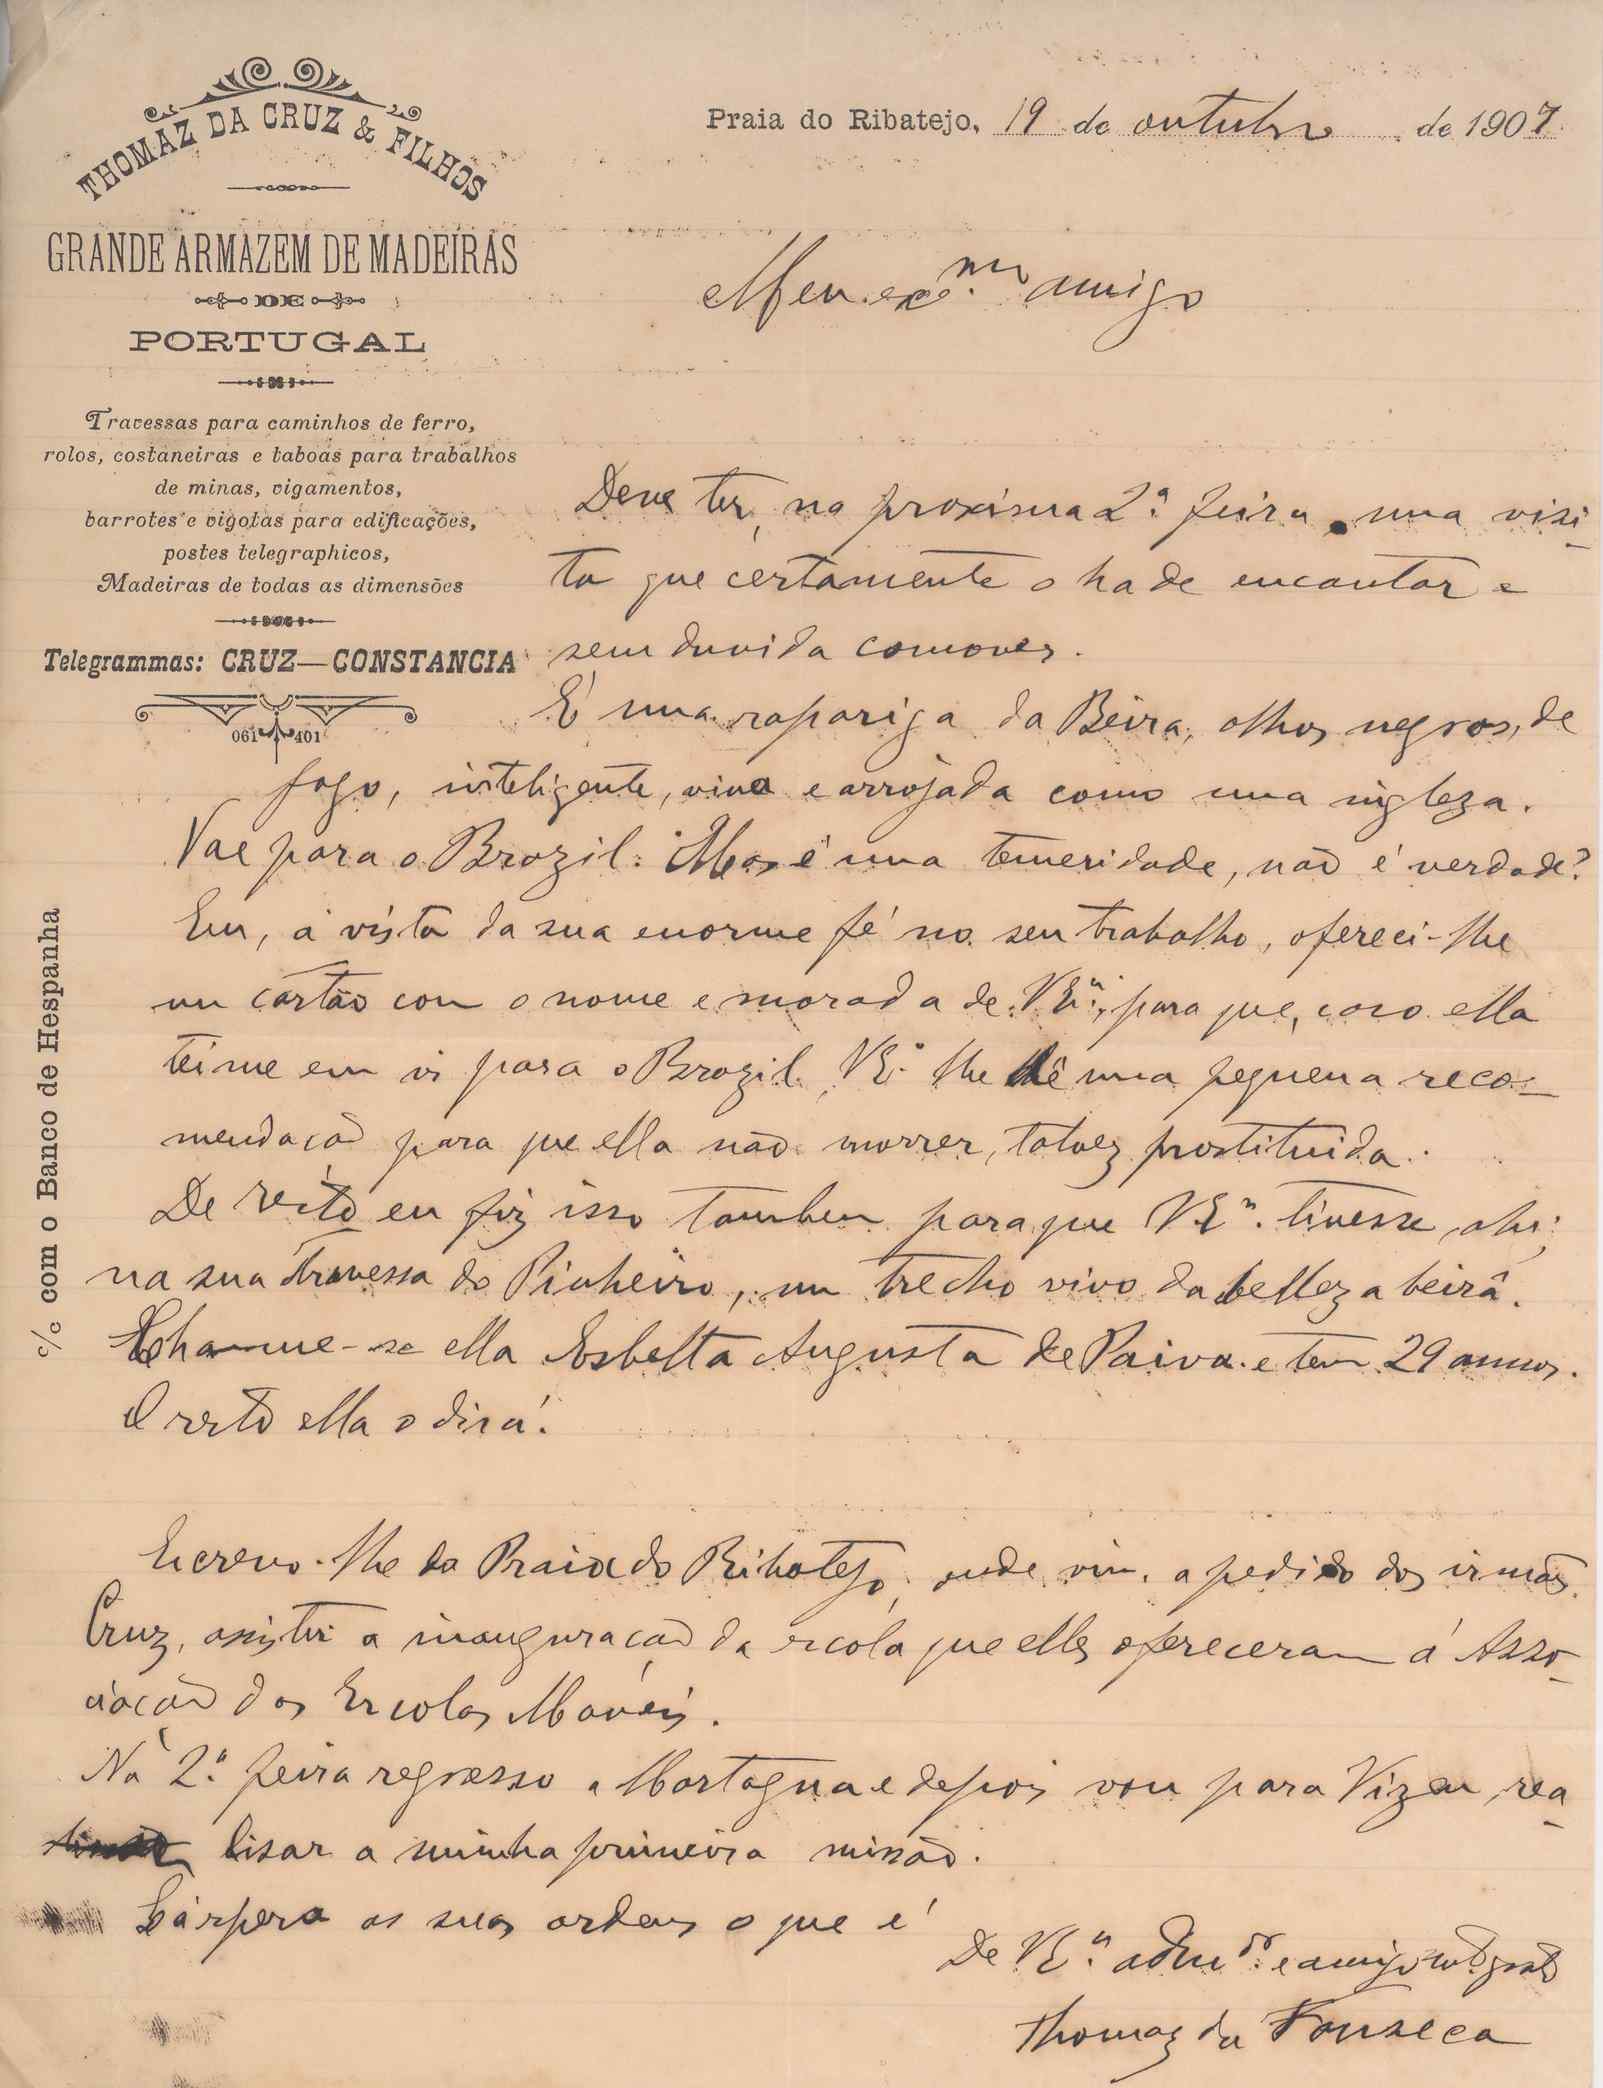 THOMAZ DA CRUZ & FILHOS
GRANDE ARMAZEM DE MADEIRAS
DE
PORTUGAL
Travessas para caminhos de ferro,
rolos, costaneiras e taboas para trabalhos
de minas, vigamentos,
barrotes e vigotas para edificações,
postes telegraphicos,
Madeiras de todas as dimensões
Telegrammas: CRUZ—CONSTANCIA
061 401
c/c com o Banco de Hespanha
Praia do Ribatejo, 19 de outubro de 1907
Meu exc.mo amigo
Deve ter, na proxima 2.ª feira, uma visi-
ta que certamente o ha de encantar e
sem duvida comover.
É uma rapariga da Beira, olhos negros, de
fogo, inteligente, viva e arrojada como uma ingleza.
Vae para o Brazil. Mas é uma temeridade, não é verdade?
Eu, á vista da sua enorme fé no seu trabalho, ofereci-lhe
um cartão com o nome e morada de V. Ex.ª, para que, caso ella
teime em ir para o Brazil, V. Ex.ª lhe dê uma pequena reco-
mendação para que ella não morrer, talvez prostituida.
De resto eu fiz isso tambem para que V. Ex.ª tivesse, ahi,
na sua travessa do Pinheiro, um trecho vivo da belleza beirã.
Chama-se ella Esbelta Augusta de Paiva e tem 29 annos.
O resto ella o dirá.
Escrevo-lhe da Praia do Ribatejo, onde vim, a pedido dos irmãos
Cruz, assistir a inauguração da escóla que elles ofereceram á Asso-
ciação das Escolas Moveis.
Na 2.ª feira regresso a Mortagua e depois vou para Vizeu, rea-
lisar a minha primeira missão.
Lá espera as suas ordens o que é
De V. Ex.ª adm.dor e amigo m.to grato
Thomaz da Fonseca